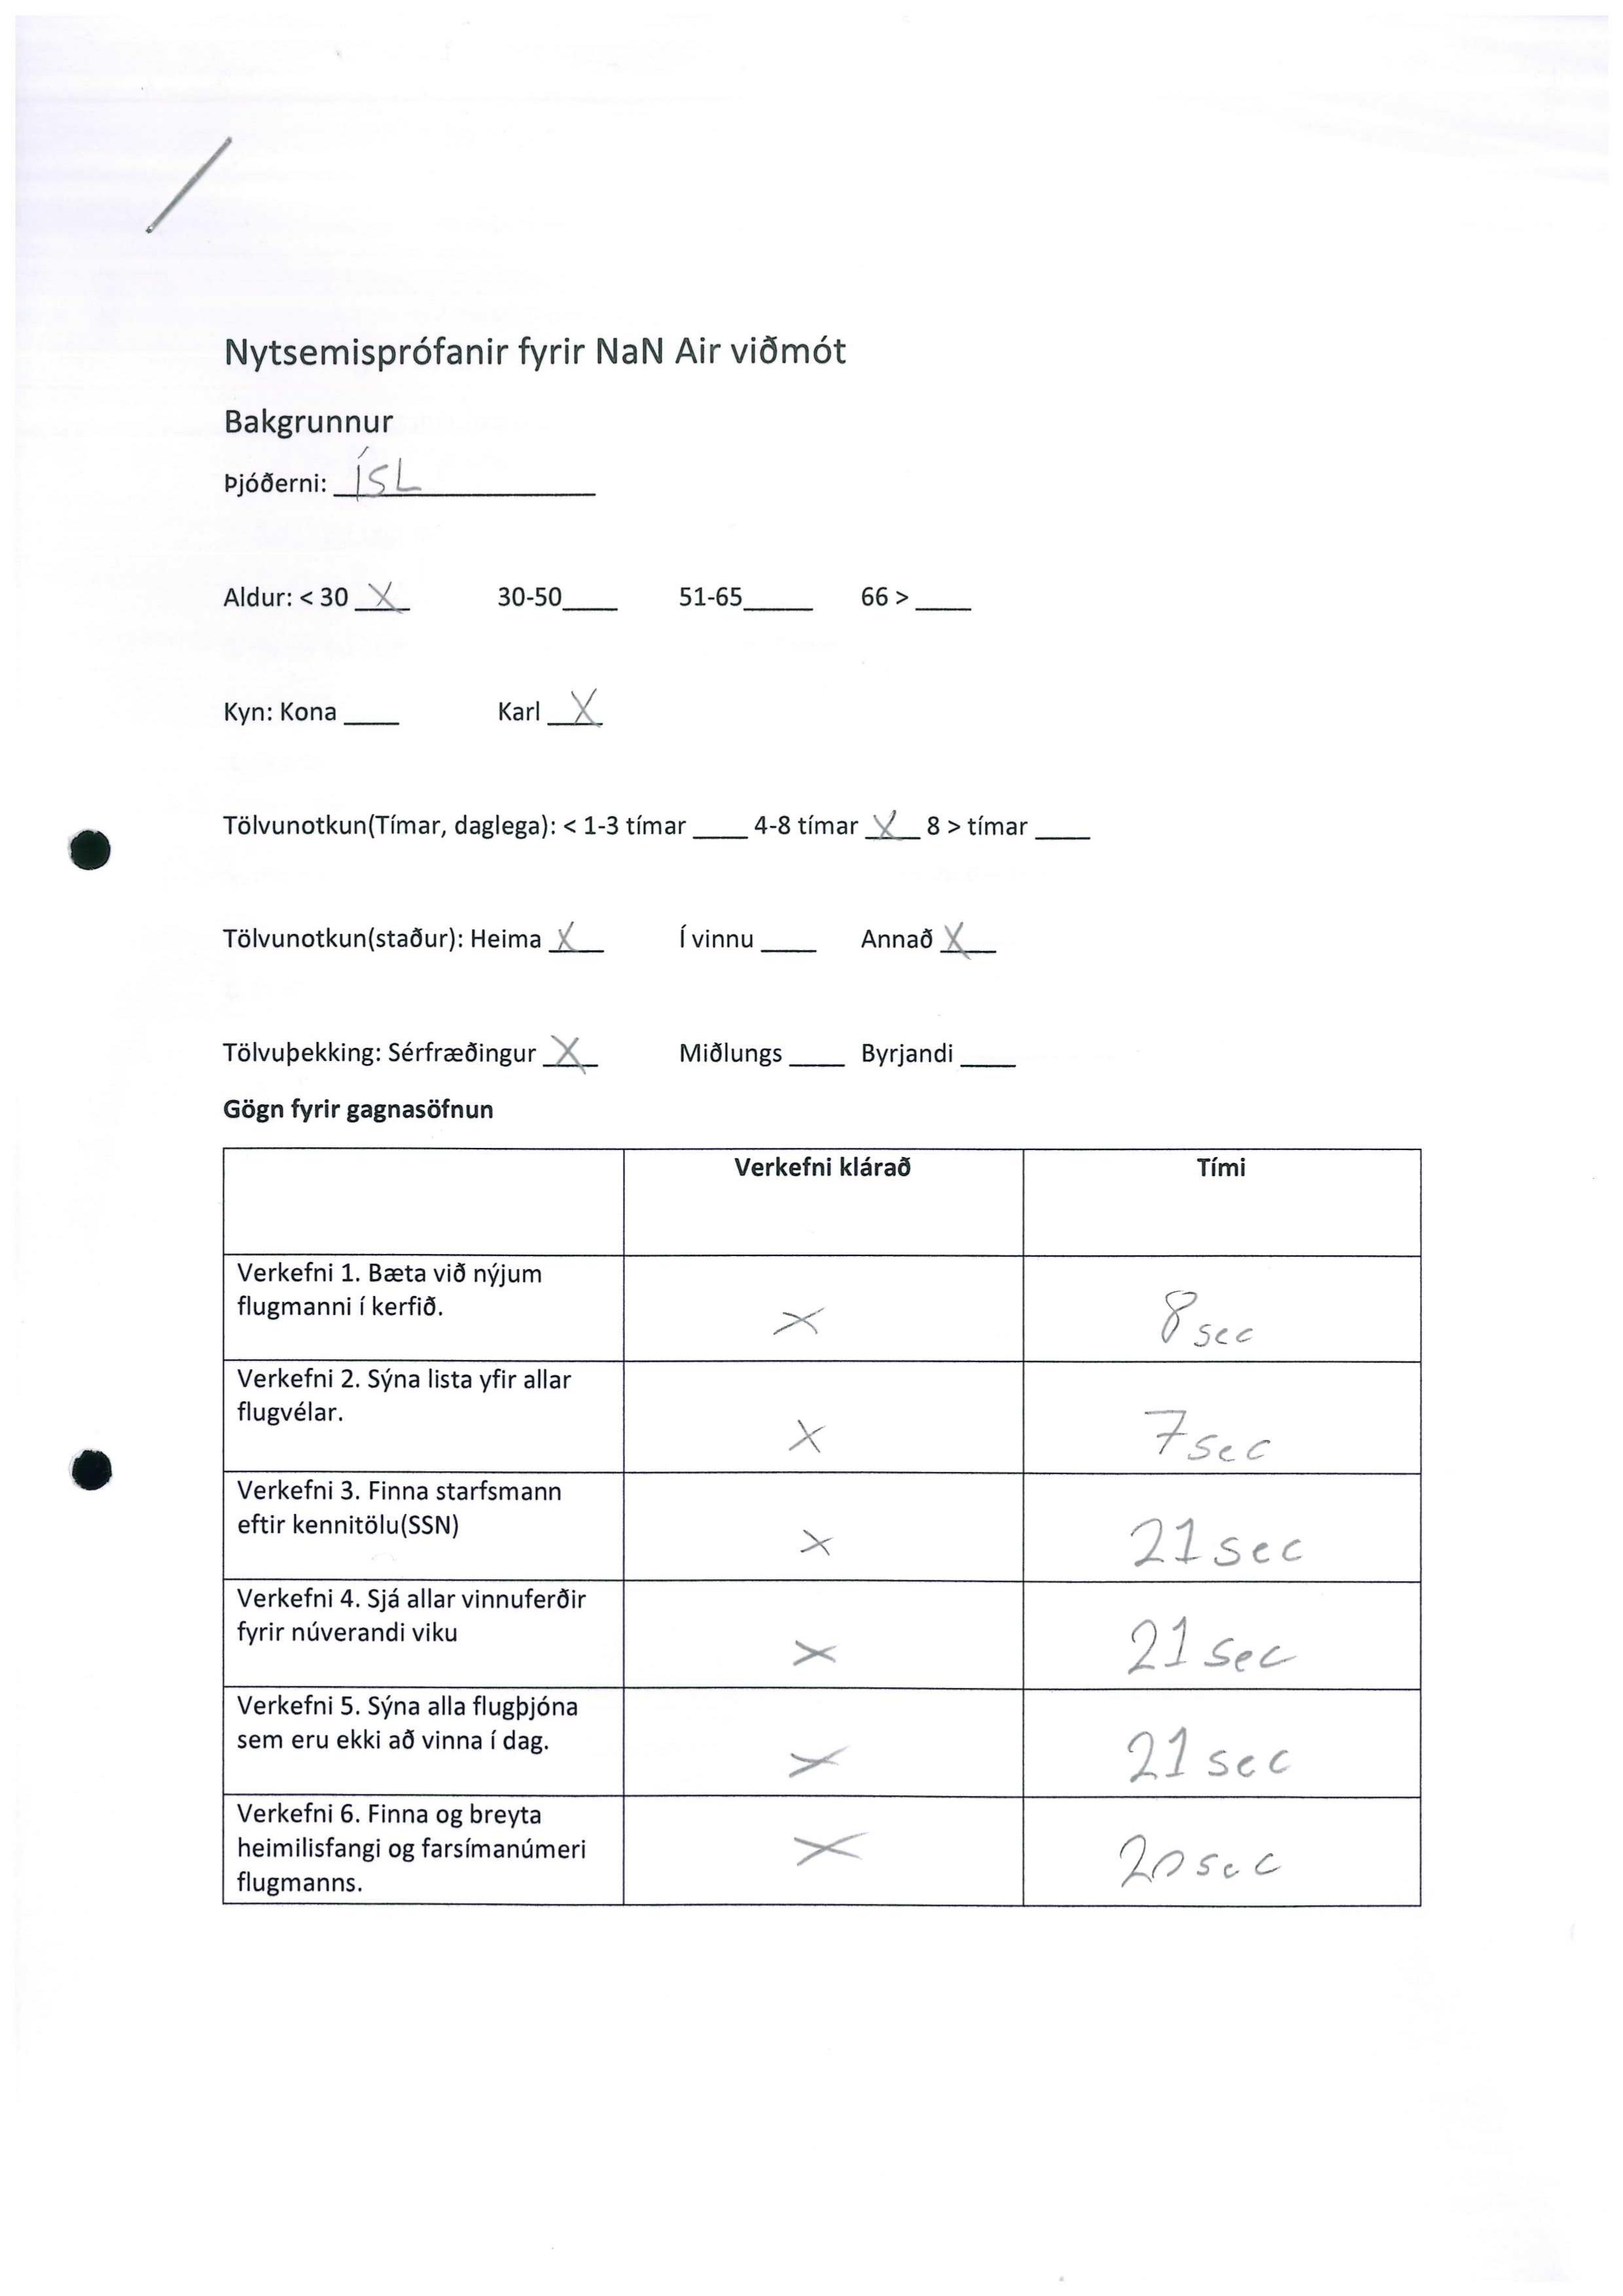 Nytsemisprófanir fyrir NaN Air viðmót
Bakgrunnur
Þjóðerni: ÍSL
Aldur: < 30 X 30-50____ 51-65____ 66 > ____
Kyn: Kona ____ Karl X
Tölvunotkun(Tímar, daglega): < 1-3 tímar ____ 4-8 tímar X 8 > tímar ____
Tölvunotkun(staður): Heima X Í vinnu ____ Annað X
Tölvuþekking: Sérfræðingur X Miðlungs ____ Byrjandi ____
Gögn fyrir gagnasöfnun
Verkefni klárað Tími
Verkefni 1. Bæta við nýjum
flugmanni í kerfið. X 8 sec
Verkefni 2. Sýna lista yfir allar
flugvélar. X 7 sec
Verkefni 3. Finna starfsmann
eftir kennitölu(SSN) X 21 sec
Verkefni 4. Sjá allar vinnuferðir
fyrir núverandi viku X 21 sec
Verkefni 5. Sýna alla flugþjóna
sem eru ekki að vinna í dag. X 21 sec
Verkefni 6. Finna og breyta
heimilisfangi og farsímanúmeri X 20 sec
flugmanns.